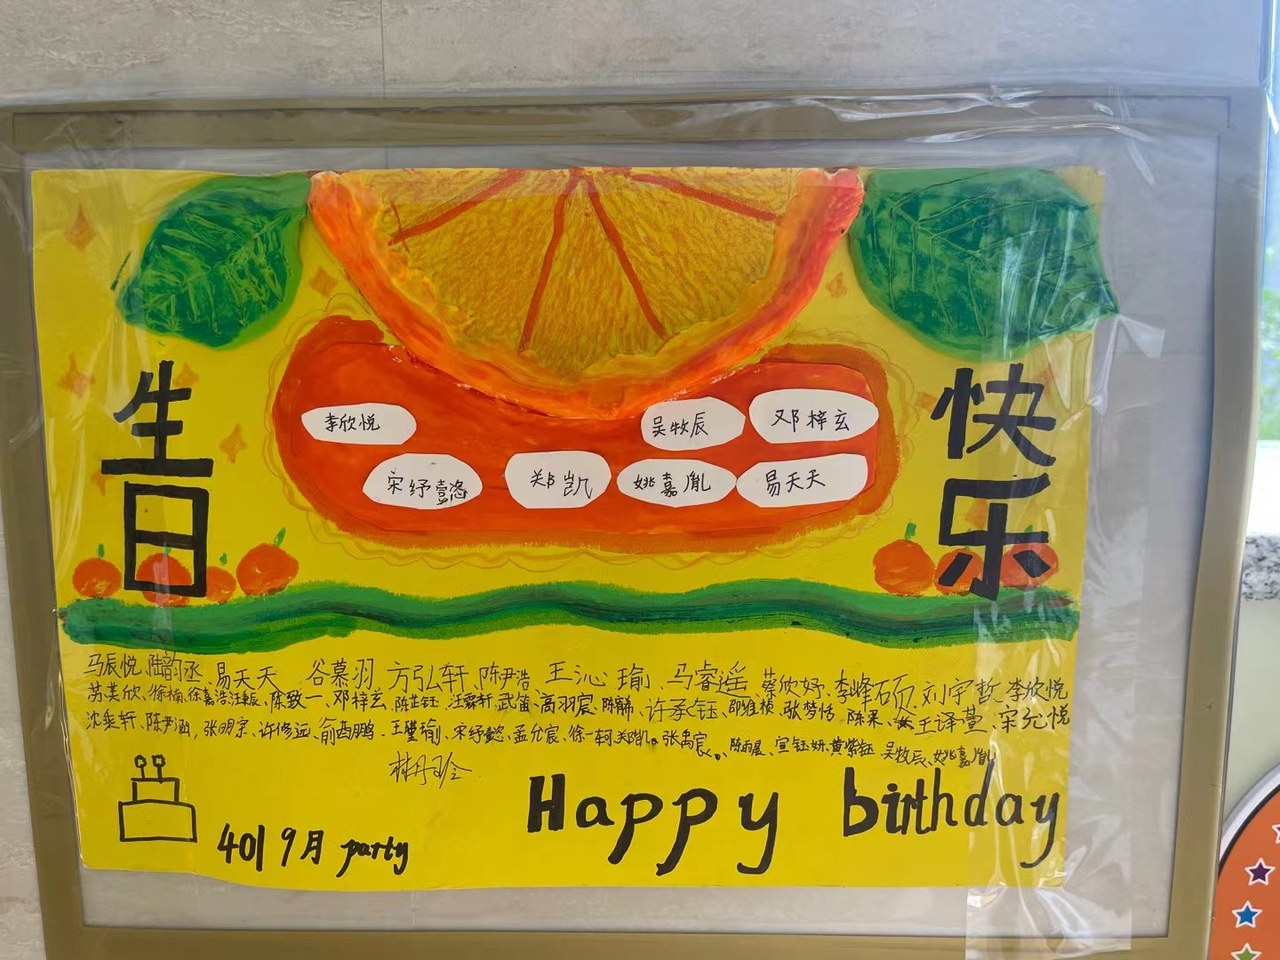 生日
快乐
李欣悦 吴牧辰 邓梓玄
宋纾懿 郑凯 姚嘉胤 易天天
马辰悦 陆韵丞、易天天 谷慕羽 方弘轩 陈尹浩 王沁瑜、马睿遥 蔡欣妤、李峰硕 刘宇哲、李欣悦
徐楠、徐嘉浩 陈致一、邓梓玄、陈芷钰、汪霖轩、武笛、高羽宸、许承钰、邵维桢、张梦恬、陈果、王译萱、宋允悦
沈奕轩、陈尹涵、张明宗、许修远、俞西鹏、孟允宸、徐一轲、郑凯、张禹宸、陈雨晨、宣钰妍、黄紫钰、吴牧辰、姚嘉胤
林丹玲
401 9月 party
Happy birthday